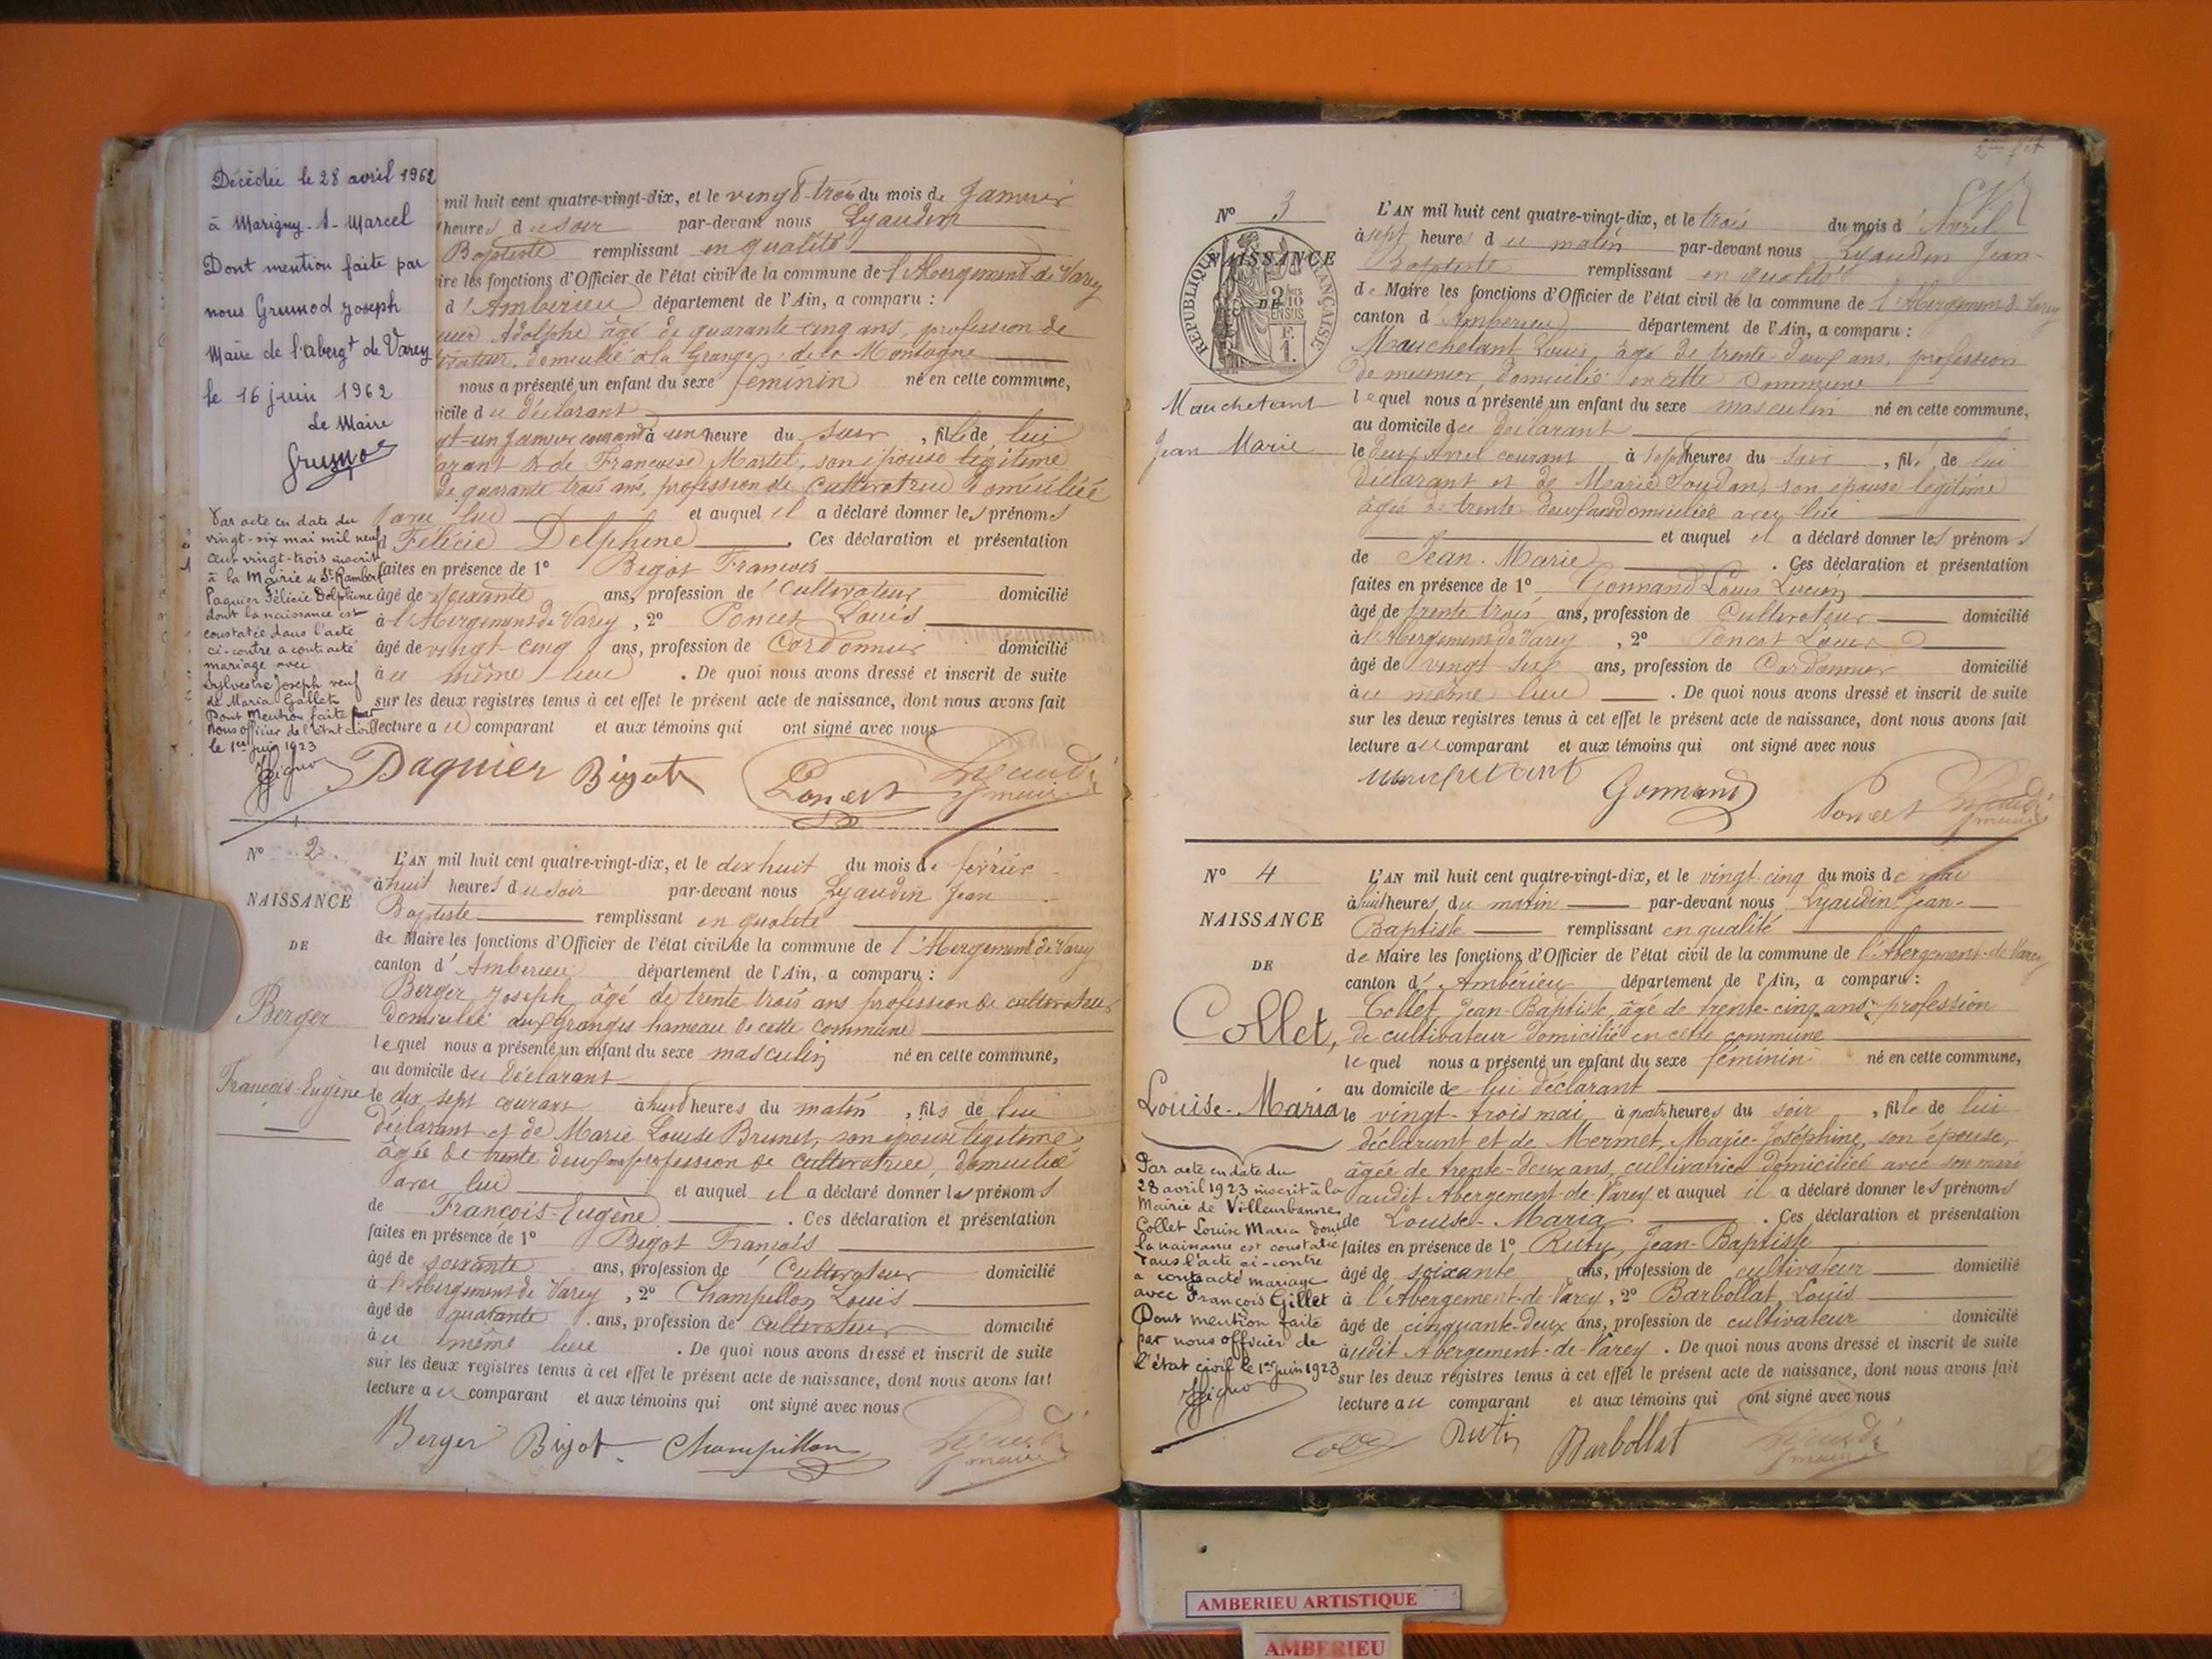 Décédée le 28 avril 1962
à Marigny-St-Marcel
Dont mention faite par
nous Grumod Joseph
Maire de l'aberg.t de Varey
le 16 juin 1962
Le Maire
mil huit cent quatre-vingt-dix, et le vingt-trois du mois de Janvier
heures du soir par-devant nous Lyaudin
Baptiste remplissant en qualité
ire les fonctions d'Officier de l'état civil de la commune de l'Abergement de Varey
d'Amberieu département de l'Ain, a comparu :
uier Adolphe âgé de quarante-cinq ans, profession de
ivateur, domicilié à la Grange de la Montagne
nous a présenté un enfant du sexe féminin né en cette commune,
icile du déclarant
gt-un Janvier courant à une heure du soir, fille de lui
arant & de Françoise Martel, son épouse légitime
de quarante trois ans, profession de cultivatrice domiciliée
avec lui et auquel il a déclaré donner les prénoms
Félicie Delphine. Ces déclaration et présentation
faites en présence de 1° Bigot François
âgé de soixante ans, profession de Cultivateur domicilié
à l'Abergement de Varey, 2° Poncet Louis
âgé de vingt-cinq ans, profession de Cordonnier domicilié
au même lieu. De quoi nous avons dressé et inscrit de suite
sur les deux registres tenus à cet effet le présent acte de naissance, dont nous avons fait
lecture au comparant et aux témoins qui ont signé avec nous
Par acte en date du
vingt-six mai mil neuf
cent vingt-trois inscrit
à la Mairie de St Rambert
Paquier Félicie Delphine
dont la naissance est
constatée dans l'acte
ci-contre a contracté
mariage avec
Sylvestre Joseph veuf
de Maria Gallet
Dont mention faite par
nous officier de l'état civil
le 1er juin 1923
Paquier Bigot Poncet Lyaudin
maire
N° 2
NAISSANCE
DE
Berger
François-Eugène
L'AN mil huit cent quatre-vingt-dix, et le dix huit du mois de février
à huit heures du soir par-devant nous Lyaudin Jean
Baptiste remplissant en qualité
de Maire les fonctions d'Officier de l'état civil de la commune de l'Abergement de Varey
canton d'Amberieu département de l'Ain, a comparu :
Berger Joseph âgé de trente trois ans profession de cultivateur
domicilié aux granges hameau de cette commune
lequel nous a présenté un enfant du sexe masculin né en cette commune,
au domicile du déclarant
le dix sept courant à huit heures du matin, fils de lui
déclarant et de Marie Louise Brunet, son épouse légitime,
âgée de trente deux ans profession de cultivatrice, domicilié
avec lui et auquel il a déclaré donner les prénoms
de François-Eugène. Ces déclaration et présentation
faites en présence de 1° Bigot François
âgé de soixante ans, profession de Cultivateur domicilié
à l'Abergement de Varey, 2° Champillon Louis
âgé de quarante ans, profession de cultivateur domicilié
au même lieu. De quoi nous avons dressé et inscrit de suite
sur les deux registres tenus à cet effet le présent acte de naissance, dont nous avons fait
lecture au comparant et aux témoins qui ont signé avec nous
Berger Bigot Champillon Lyaudin
maire
N° 3
NAISSANCE
DE
RÉPUBLIQUE FRANÇAISE
Mauchetant
Jean Marie
L'AN mil huit cent quatre-vingt-dix, et le trois du mois d'Avril
à sept heures du matin par-devant nous Lyaudin Jean-
Baptiste remplissant en qualité
de Maire les fonctions d'Officier de l'état civil de la commune de l'Abergement de Varey
canton d'Amberieu département de l'Ain, a comparu :
Mauchetant Louis, âgé de trente-deux ans, profession
de meunier, domicilié en cette commune
lequel nous a présenté un enfant du sexe masculin né en cette commune,
au domicile du déclarant
le deux Avril courant à sept heures du soir, fils de lui
déclarant et de Marie Joudan, son épouse légitime
âgée de trente deux ans domiciliée avec lui
et auquel il a déclaré donner les prénoms
de Jean-Marie. Ces déclaration et présentation
faites en présence de 1° Gonnand Louis Lucien
âgé de trente trois ans, profession de Cultivateur domicilié
à l'Abergement de Varey, 2° Poncet Louis
âgé de vingt-six ans, profession de Cordonnier domicilié
au même lieu. De quoi nous avons dressé et inscrit de suite
sur les deux registres tenus à cet effet le présent acte de naissance, dont nous avons fait
lecture au comparant et aux témoins qui ont signé avec nous
Gonnand Poncet Lyaudin
maire
N° 4
NAISSANCE
DE
Collet,
Louise-Maria
L'AN mil huit cent quatre-vingt-dix, et le vingt-cinq du mois de mai
à huit heures du matin par-devant nous Lyaudin Jean-
Baptiste remplissant en qualité
de Maire les fonctions d'Officier de l'état civil de la commune de l'Abergement-de-Varey
canton d'Ambérieu département de l'Ain, a comparu :
Collet, Jean-Baptiste, âgé de trente-cinq ans, profession
de cultivateur domicilié en cette commune
lequel nous a présenté un enfant du sexe féminin né en cette commune,
au domicile de lui déclarant
le vingt-trois mai à quatre heures du soir, fille de lui
déclarant et de Mermet, Marie-Joséphine, son épouse,
âgée de trente-deux ans, cultivatrice domiciliée avec son mari
audit Abergement-de-Varey et auquel il a déclaré donner les prénoms
de Louise-Maria. Ces déclaration et présentation
faites en présence de 1° Ruty, Jean-Baptiste
âgé de soixante ans, profession de cultivateur domicilié
à l'Abergement-de-Varey, 2° Barbollat, Louis
âgé de cinquante-deux ans, profession de cultivateur domicilié
audit Abergement-de-Varey. De quoi nous avons dressé et inscrit de suite
sur les deux registres tenus à cet effet le présent acte de naissance, dont nous avons fait
lecture au comparant et aux témoins qui ont signé avec nous
Par acte en date du
28 avril 1923 inscrit à la
Mairie de Villeurbanne,
Collet Louise Maria dont
la naissance est constatée
dans l'acte ci-contre
a contracté mariage
avec François Gillet
Dont mention faite
par nous officier de
l'état civil le 1er juin 1923
Ruty Barbollat Lyaudin
maire
AMBERIEU ARTISTIQUE
AMBERIEU